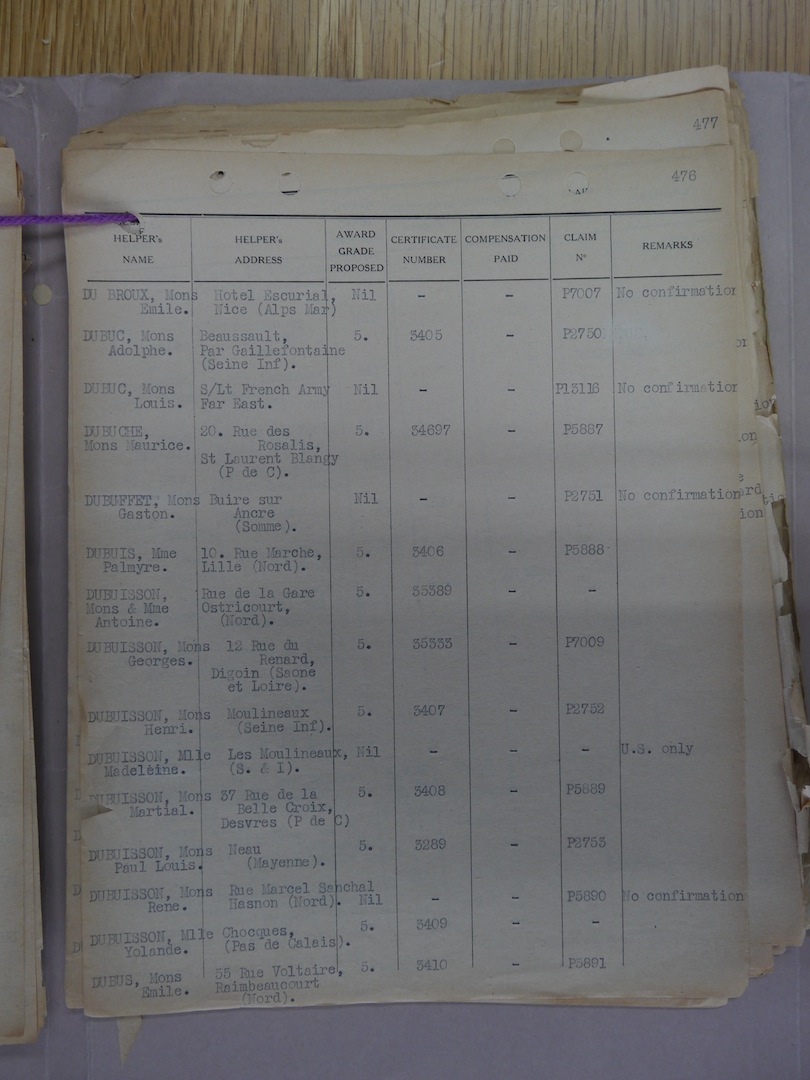 477
476
HELPER's NAME HELPER's ADDRESS AWARD GRADE PROPOSED CERTIFICATE NUMBER COMPENSATION PAID CLAIM No REMARKS
DU BROUX, Mons Hotel Escurial, Nil - - P7007 No confirmation
Emile. Nice (Alps Mar)
DUBUC, Mons Beaussault, 5. 3405 - P2750
Adolphe. Par Gaillefontaine
(Seine Inf).
DUBUC, Mons S/Lt French Army Nil - - P13116 No confirmation
Louis. Far East.
DUBUCHE, 20. Rue des 5. 34697 - P5887
Mons Maurice. Rosalis,
St Laurent Blangy
(P de C).
DUBUFFET, Mons Buire sur Nil - - P2751 No confirmation
Gaston. Ancre
(Somme).
DUBUIS, Mme 10. Rue Marche, 5. 3406 - P5888
Palmyre. Lille (Nord).
DUBUISSON, Rue de la Gare 5. 35389 - -
Mons & Mme Ostricourt,
Antoine. (Nord).
DUBUISSON, Mons 12 Rue du 5. 35333 - P7009
Georges. Renard,
Digoin (Saone
et Loire).
DUBUISSON, Mons Moulineaux 5. 3407 - P2752
Henri. (Seine Inf).
DUBUISSON, Mlle Les Moulineaux, Nil - - - U.S. only
Madeleine. (S. & I).
DUBUISSON, Mons 37 Rue de la 5. 3408 - P5889
Martial. Belle Croix,
Desvres (P de C)
DUBUISSON, Mons Neau 5. 3289 - P2753
Paul Louis. (Mayenne).
DUBUISSON, Mons Rue Marcel Sanchal
Rene. Hasnon (Nord). Nil - - P5890 No confirmation
DUBUISSON, Mlle Chocques, 5. 3409 - -
Yolande. (Pas de Calais).
DUBUS, Mons 55 Rue Voltaire, 5. 3410 - P5891
Emile. Raimbeaucourt
(Nord).